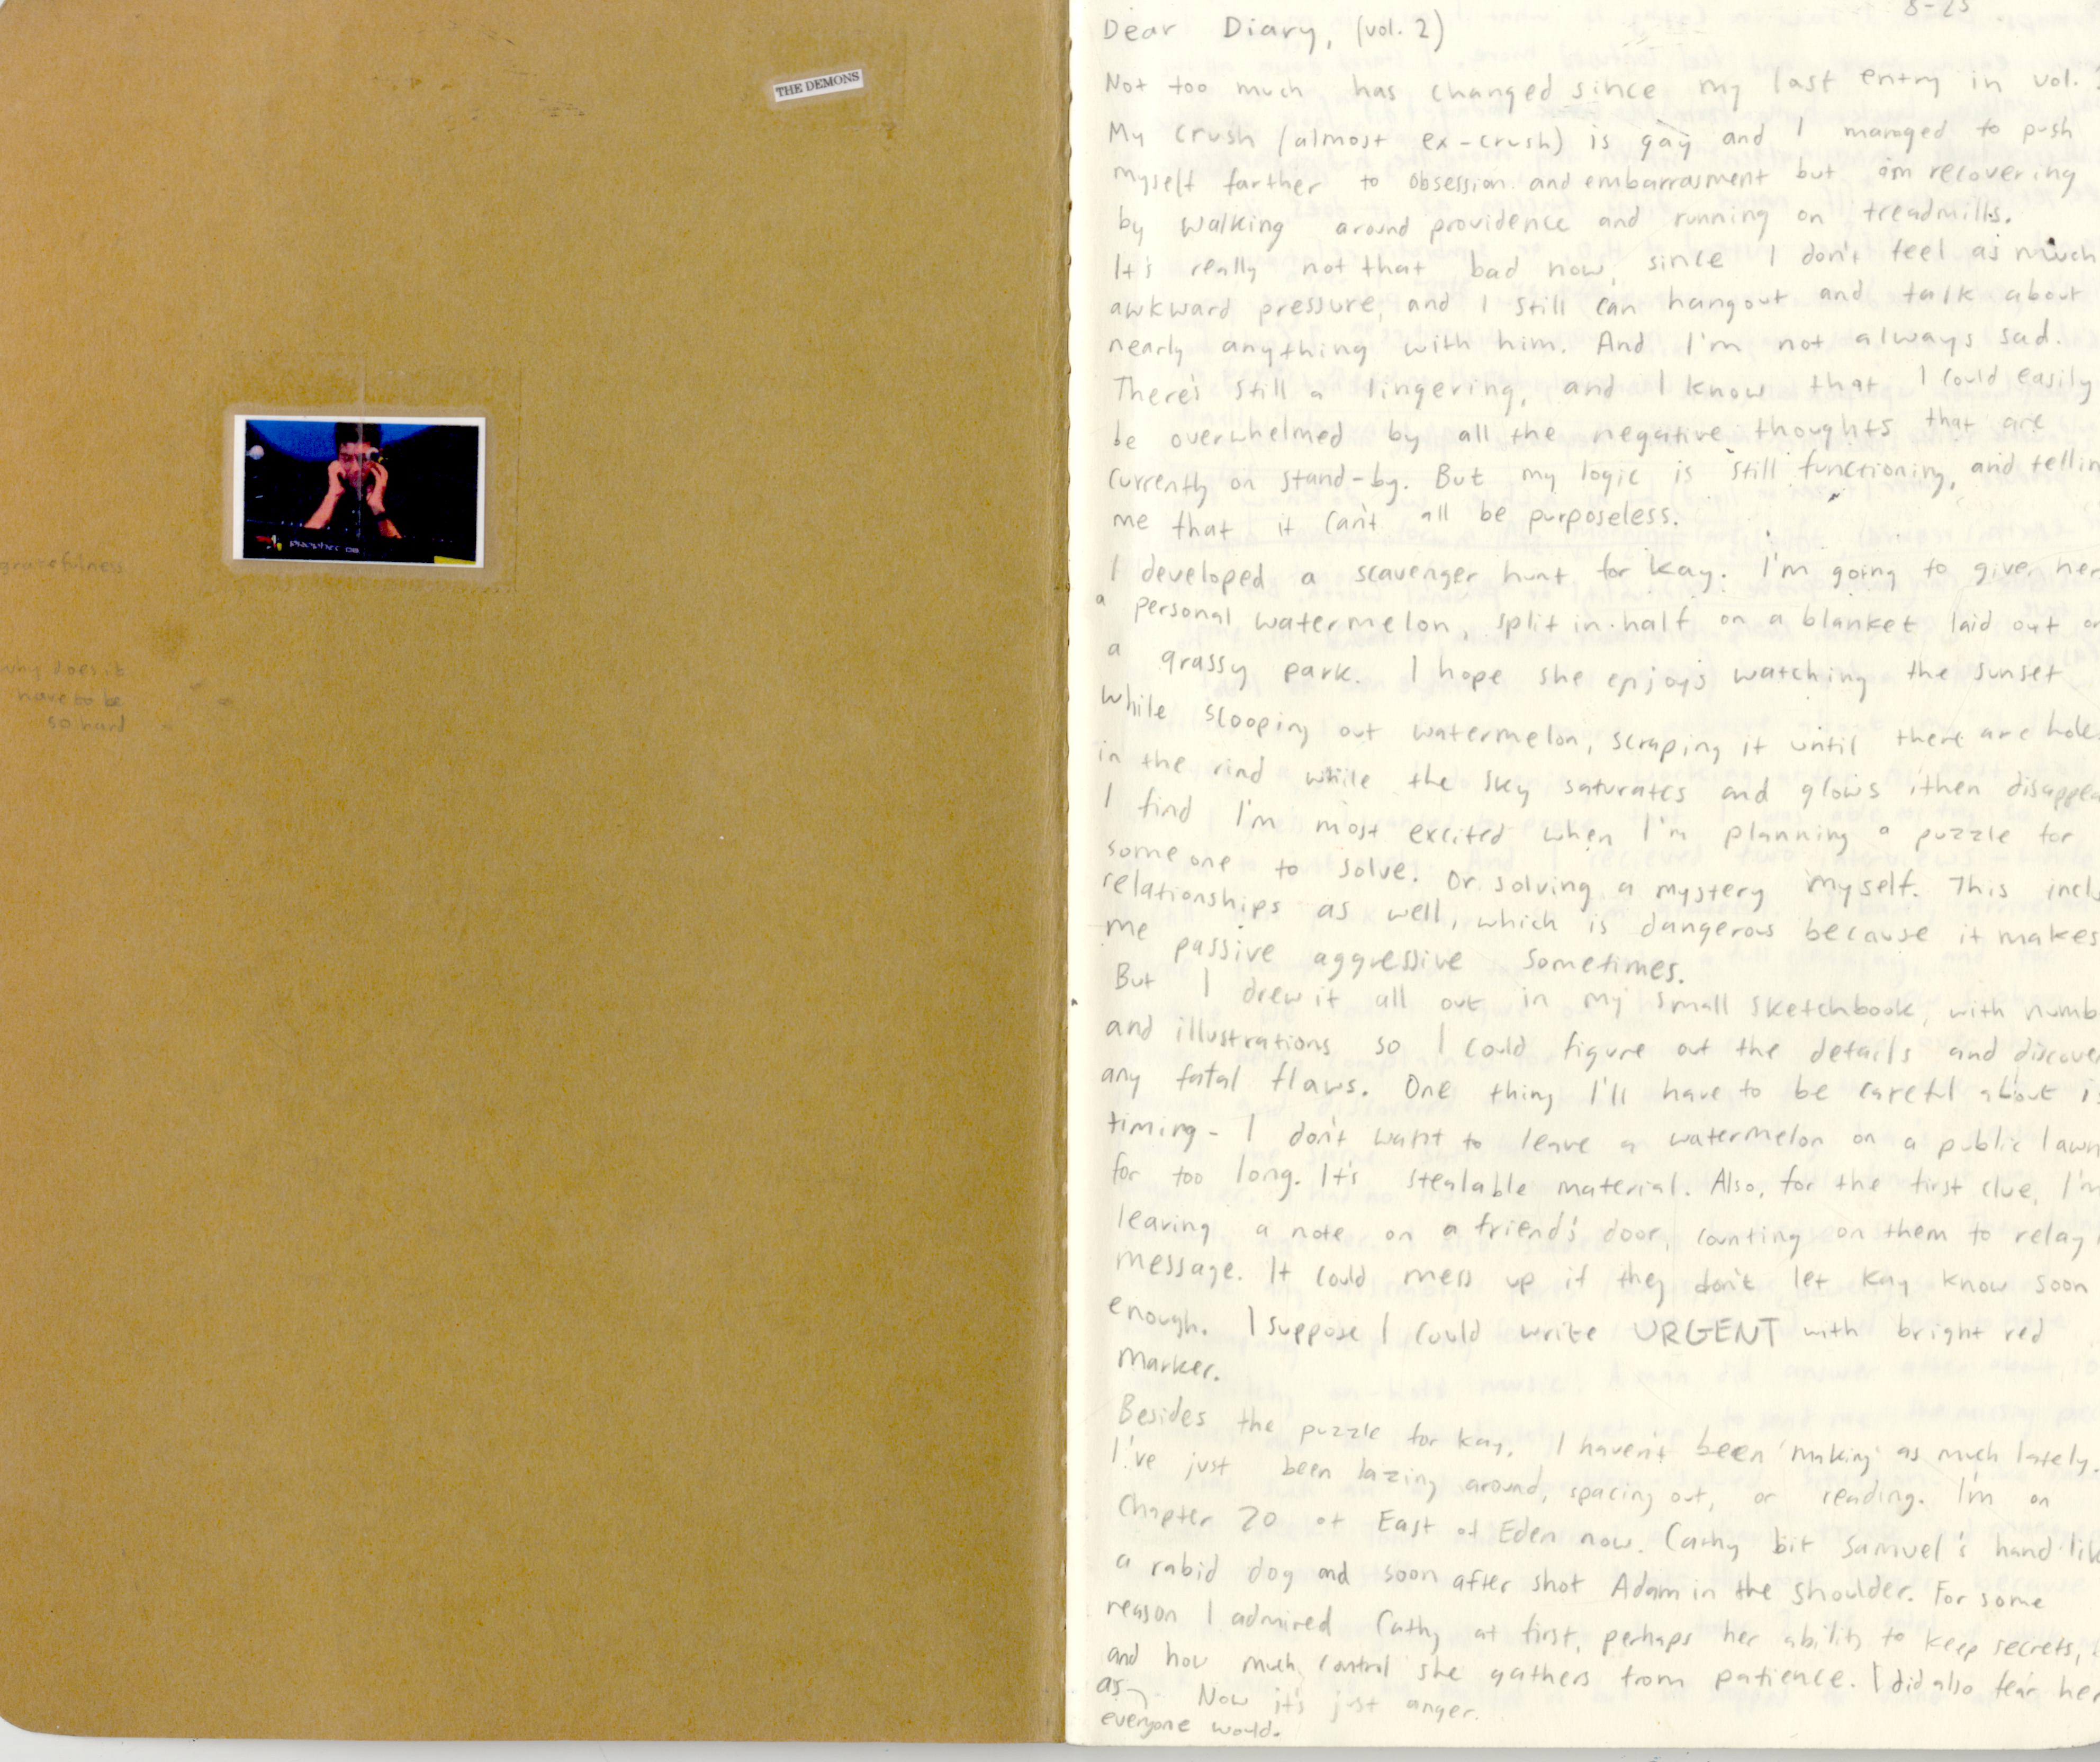 THE DEMONS
gracefulness
why does it
have to be
so hard
8-25
Dear Diary, (vol. 2)
Not too much has changed since my last entry in vol.
My crush (almost ex-crush) is gay and I managed to push
myself farther to obsession and embarrasment but am recovering
by walking around providence and running on treadmills.
It's really not that bad now, since I don't feel as much
awkward pressure, and I still can hangout and talk about
nearly anything with him. And I'm not always sad.
There's still a lingering, and I know that I could easily
be overwhelmed by all the negative thoughts that are
currently on stand-by. But my logic is still functioning, and tellin
me that it can't all be purposeless.
I developed a scavenger hunt for Kay. I'm going to give her
a personal watermelon, split in-half on a blanket laid out on
a grassy park. I hope she enjoys watching the sunset
while scooping out watermelon, scraping it until there are hole
in the rind while the sky saturates and glows then disappea
I find I'm most excited when I'm planning a puzzle for
someone to solve. Or solving a mystery myself. This inclu
relationships as well, which is dangerous because it makes
me passive aggressive sometimes.
But I drew it all out in my small sketchbook, with numb
and illustrations so I could figure out the details and discove
any fatal flaws. One thing I'll have to be careful about is
timing - I don't want to leave a watermelon on a public lawn
for too long. It's stealable material. Also, for the first clue, I'm
leaving a note on a friend's door, counting on them to relay
message. It could mess up if they don't let Kay know soon
enough. I suppose I could write URGENT with bright red
marker.
Besides the puzzle for Kay, I haven't been 'making' as much lately.
I've just been lazing around, spacing out, or reading. I'm on
Chapter 20 of East of Eden now. Cathy bit Samuel's hand lik
a rabid dog and soon after shot Adam in the shoulder. For some
reason I admired Cathy at first, perhaps her ability to keep secrets,
and how much control she gathers from patience. I did also fear her
as Now it's just anger.
everyone would.